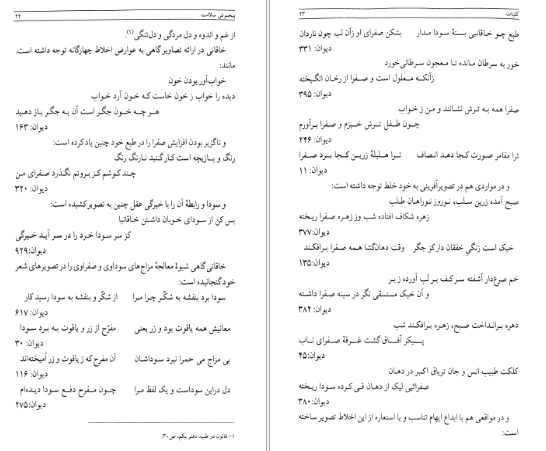 پنجنوش سلامت ۲۲
از غم و اندوه و دل مردگی و دلتنگی(۱)
خاقانی در ارائه تصاویر گاهی به عوارض اخلاط چهارگانه توجه داشته است.
مانند:
خواب‌آور بودن خون
دیده را خواب ز خون خاست که خون آرد خواب
هر چه خون جگر است آن به جگر باز دهید
دیوان: ۱۶۳
و ناگزیر بودن افزایش صفرا را در طبع خود چنین یاد کرده است:
رنگ و بازیچه است کار گنبد نارنگ رنگ
چند کوشم کز بروتم نگذرد صفرای من
دیوان: ۳۲۰
و سودا و رابطهٔ آن را با خیرگی عقل چنین به تصویر کشیده است:
بس کن از سودای خوبان داشتن خاقانیا
کز سر سودا خرد را در سر آید خیرگی
دیوان:۹۲۹
خاقانی گاهی شیوهٔ معالجهٔ مزاج‌های سوداوی و صفراوی را در تصویرهای شعر
خود گنجانیده است:
سودا برد بنفشه به شکّر چرا مرا از شکّر و بنفشه به سودا رسید کار
دیوان: ۶۱۷
معانیش همه یاقوت بود و زر یعنی مفرّح از زر و یاقوت به برد سودا
دیوان: ۳۰
بی مزاج می حمرا نبرد سوداشان آن مفرح که ز یاقوت و زر آمیخته‌اند
دیوان: ۱۱۶
دل دراین سوداست و یک لفظ مرا چون مفرح دفع سودا دیده‌ام
دیوان:۲۷۵
۱- قانون در طب، دفتر یکم، ص۳۰.
کلیات ۲۳
طبع چو خاقانیی بستهٔ سودا مدار بشکن صفرای او زآن لب چون ناردان
دیوان: ۳۳۱
خور به سرطان مانده تا معجون سرطانی خورد
زآنکه معلول است و صفرا از رخان انگیخته
دیوان: ۳۹۵
صفرا همه به ترش نشانند و من ز خواب
چون طفل ترش خیزم و صفرا برآورم
دیوان: ۲۴۶
ترا مقامر صورت کجا دهد انصاف ترا هلیلهٔ زرین کجا برد صفرا
دیوان: ۱۱
و در مواردی هم در تصویرآفرینی به خود خلط توجه داشته است:
صبح آمده زرین سلب، نوروز نوراهان طلب
زهره شکاف افتاده شب وز زهره صفرا ریخته
دیوان:۳۷۷
خیک است زنگیِ خفقان دارکز جگر وقت دهان‌گشا همه صفرا برافکند
دیوان:۱۳۵
خم صرع‌دار آشفته سر کف بر لب آورده ز بر
و آن خیک مستسقی نگر در سینه صفرا داشته
دیوان: ۳۸۲
دهره برانداخت صبح، زهره برافکند شب
پیکر آفاق گشت غرقهٔ صفرای ناب
دیوان:۴۵
کلکت طبیب انس و جان تریاق اکبر در دهان
صفرائیی لیک از دهان قی کرده سودا ریخته
دیوان:۳۸۰
و در مواقعی هم با ابداع ایهام تناسب و یا استعاره از این اخلاط تصویر ساخته
است: